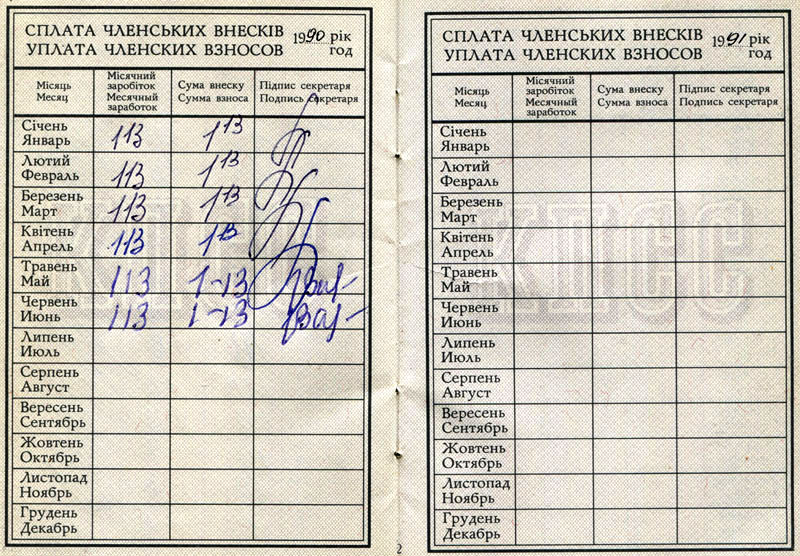 СПЛАТА ЧЛЕНСЬКИХ ВНЕСКІВ 1990 рік
УПЛАТА ЧЛЕНСКИХ ВЗНОСОВ год
Місяць
Месяц
Місячний
заробіток
Месячный
заработок
Сума внеску
Сумма взноса
Підпис секретаря
Подпись секретаря
Січень
Январь 113 1 13
Лютий
Февраль 113 1 13
Березень
Март 113 1 13
Квітень
Апрель 113 1 13
Травень
Май 113 1-13
Червень
Июнь 113 1-13
Липень
Июль
Серпень
Август
Вересень
Сентябрь
Жовтень
Октябрь
Листопад
Ноябрь
Грудень
Декабрь
КПСС
СПЛАТА ЧЛЕНСЬКИХ ВНЕСКІВ 1991 рік
УПЛАТА ЧЛЕНСКИХ ВЗНОСОВ год
Місяць
Месяц
Місячний
заробіток
Месячный
заработок
Сума внеску
Сумма взноса
Підпис секретаря
Подпись секретаря
Січень
Январь
Лютий
Февраль
Березень
Март
Квітень
Апрель
Травень
Май
Червень
Июнь
Липень
Июль
Серпень
Август
Вересень
Сентябрь
Жовтень
Октябрь
Листопад
Ноябрь
Грудень
Декабрь
КПСС
2